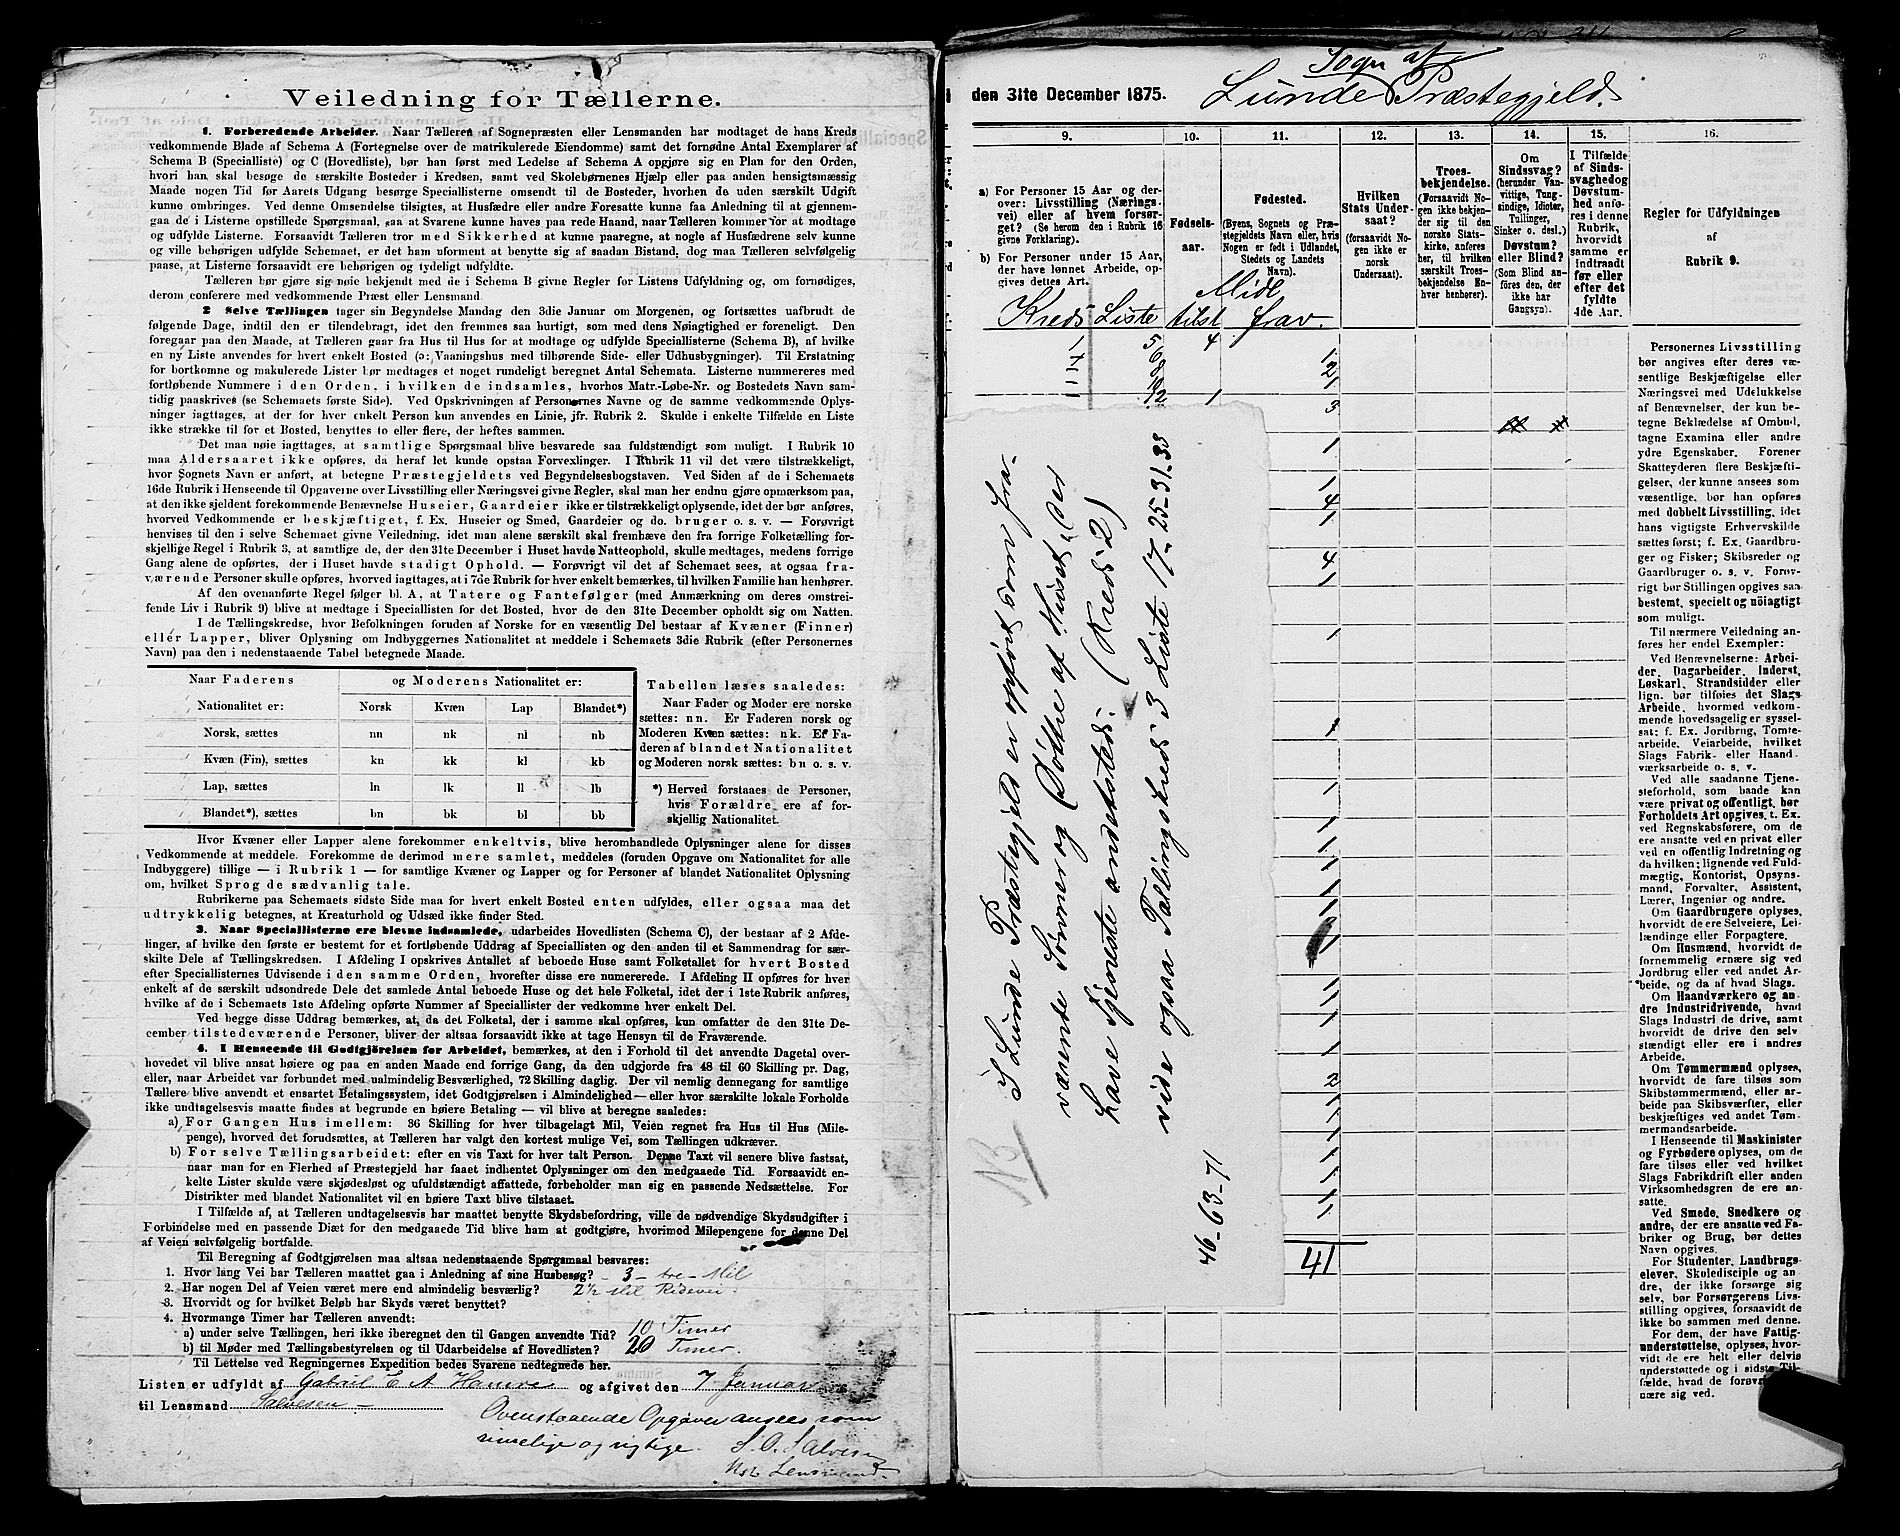 Veiledning for Tællerne.
1. Forberedende Arbeider. Naar Tælleren af Sognepræsten eller Lensmanden har modtaget de hans Kreds
vedkommende Blade af Schema A (Fortegnelse over de matrikulerede Eiendomme) samt det fornødne Antal Exemplarer af
Schema B (Specialliste) og C (Hovedliste), bør han først med Ledelse af Schema A opgjøre sig en Plan for den Orden,
hvori han skal besøge de særskilte Bosteder i Kredsen, samt ved Skolebørnenes Hjælp eller paa anden hensigtsmæssig
Maade nogen Tid før Aarets Udgang besørge Speciallisterne omsendt til de Bosteder, hvorhen de uden særskilt Udgift
kunne ombringes. Ved denne Omsendelse tilsigtes, at Husfædre eller andre Foresatte kunne faa Anledning til at gjennem-
gaa de i Listerne opstillede Spørgsmaal, saa at Svarene kunne haves paa rede Haand, naar Tælleren kommer for at modtage
og udfylde Listerne. Forsaavidt Tælleren tror med Sikkerhed at kunne paaregne, at nogle af Husfædrene selv kunne
og ville behørigen udfylde Schemaet, er det ham uforment at benytte sig af saadan Bistand, dog maa Tælleren selvfølgelig
paase, at Listerne forsaavidt ere behørigen og tydeligt udfyldte.
Tælleren bør gjøre sig nøie bekjendt med de i Schema B givne Regler for Listens Udfyldning og, om fornødiges,
derom conferere med vedkommende Præst eller Lensmand.
2 Selve Tællingen tager sin Begyndelse Mandag den 3die Januar om Morgenen, og fortsættes uafbrudt de
følgende Dage, indtil den er tilendebragt, idet den fremmes saa hurtigt, som med dens Nøiagtighed er foreneligt. Den
foregaar paa den Maade, at Tælleren gaar fra Hus til Hus for at modtage og udfylde Speciallisterne (Schema B), af hvilke
en ny Liste anvendes for hvert enkelt Bosted (ɔ: Vaaningshus med tilhørende Side- eller Udhusbygninger). Til Erstatning
for bortkomne og makulerede Lister bør medtages et noget rundeligt beregnet Antal Schemata. Listerne nummereres med
fortløbende Nummere i den Orden, i hvilken de indsamles, hvorhos Matr.-Løbe-Nr. og Bostedets Navn sam-
tidig paaskrives (se Schemaets første Side). Ved Opskrivningen af Personernes Navne og de samme vedkommende Oplys-
ninger iagttages, at der for hver enkelt Person kun anvendes en Linie, jfr. Rubrik 2. Skulde i enkelte Tilfælde en Liste
ikke strække til for et Bosted, benyttes to eller flere, der heftes sammen.
Det maa nøie iagttages, at samtlige Spørgsmaal blive besvarede saa fuldstændigt som muligt. I Rubrik 10
maa Aldersaaret ikke opføres, da heraf let kunde opstaa Forvexlinger. I Rubrik 11 vil det være tilstrækkeligt,
hvor Sognets Navn er anført, at betegne Præstegjeldets ved Begyndelsesbogstaven. Ved Siden af de i Schemaets
16de Rubrik i Henseende til Opgaverne over Livsstilling eller Næringsvei givne Regler, skal man her endnu gjøre opmærksom paa,
at den ikke sjeldent forekommende Benævnelse Huseier, Gaardeier ikke er tilstrækkeligt oplysende, idet der bør anføres,
hvorved Vedkommende er beskjæftiget, f. Ex. Huseier og Smed, Gaardeier og do. bruger o. s. v. — Forøvrigt
henvises til den i selve Schemaet givne Veiledning, idet man alene særskilt skal fremhæve den fra forrige Folketælling for-
skjellige Regel i Rubrik 3, at samtlige de, der den 31te December i Huset havde Natteophold, skulle medtages, medens forrige
Gang alene de opførtes, der i Huset havde stadigt Ophold. — Forøvrigt vil det af Schemaet sees, at ogsaa fra-
værende Personer skulle opføres, hvorved iagttages, at i 7de Rubrik for hver enkelt bemærkes, til hvilken Familie han henhører.
Af den ovenanførte Regel følger bl. A, at Tatere og Fantefølger (med Anmærkning om deres omstrei-
fende Liv i Rubrik 9) blive at medtage i Speciallisten for det Bosted, hvor de den 31te December opholdt sig om Natten.
I de Tællingskredse, hvor Befolkningen foruden af Norske for en væsentlig Del bestaar af Kvæner (Finner)
eller Lapper, bliver Oplysning om Indbyggernes Nationalitet at meddele i Schemaets 3die Rubrik (efter Personernes
Navn) paa den i nedenstaaende Tabel betegnede Maade.
Naar Faderens og Moderens Nationalitet er:
Nationalitet er: Norsk Kvæn Lap Blandet*)
Norsk, sættes nn nk nl nb
Kvæn (Fin), sættes kn kk kl kb
Lap, sættes ln lk ll lb
Blandet*), sættes bn bk bl bb
Tabellen læses saaledes:
Naar Fader og Moder ere norske
sættes: nn. Er Faderen norsk og
Moderen Kvæn sættes: nk. Er Fa-
deren af blandet Nationalitet
og Moderen norsk sættes: bn o. s. v.
*) Herved forstaaes de Personer,
hvis Forældre ere af for-
skjellig Nationalitet.
Hvor Kvæner eller Lapper alene forekommer enkeltvis, blive heromhandlede Oplysninger alene for disses
Vedkommende at meddele. Forekomme de derimod mere samlet, meddeles (foruden Opgave om Nationalitet for alle
Indbyggere) tillige — i Rubrik 1 — for samtlige Kvæner og Lapper og for Personer af blandet Nationalitet Oplysning
om, hvilket Sprog de sædvanlig tale.
Rubrikerne paa Schemaets sidste Side maa for hvert enkelt Bosted enten udfyldes, eller ogsaa maa det
udtrykkelig betegnes, at Kreaturhold og Udsæd ikke finder Sted.
3. Naar Speciallisterne ere blevne indsamlede, udarbeides Hovedlisten (Schema C), der bestaar af 2 Afde-
linger, af hvilke den første er bestemt for et fortløbende Uddrag af Speciallisten og den anden til et Sammendrag for sær-
skilte Dele af Tællingskredsen. I Afdeling I opskrives Antallet af beboede Huse samt Folketallet for hvert Bosted
efter Speciallisternes Udvisende i den samme Orden, hvorefter disse ere nummererede. I Afdeling II opføres for hver
enkelt af de særskilt udsondrede Dele det samlede Antal beboede Huse og det hele Folketal, idet der i 1ste Rubrik anføres,
hvilke af de i Schemaets 1ste Afdeling opførte Nummer af Speciallister der vedkomme hver enkelt Del.
Ved begge disse Uddrag bemærkes, at, da det Folketal, der i samme skal opføres, kun omfatter de den 31te De-
cember tilstedeværende Personer, bliver der altsaa forsaavidt ikke at tage Hensyn til de Fraværende.
4. I Henseende til Godtgjørelsen for Arbeidet, bemærkes, at den i Forhold til det anvendte Dagetal over-
hovedet vil blive ansat høiere og paa en anden Maade end forrige Gang, da den udgjorde fra 48 til 60 Skilling pr. Dag,
eller, naar Arbeidet var forbundet med ualmindelig Besværlighed, 72 Skilling daglig. Der vil nemlig dennegang for samtlige
Tællere blive anvendt et ensartet Betalingssystem, idet Godtgjørelsen i Almindelighed — eller hvor særskilte lokale Forholde
ikke undtagelsesvis maatte findes at begrunde en høiere Betaling — vil blive at beregne saaledes:
a) For Gangen Hus imellem: 36 Skilling for hver tilbagelagt Mil, Veien regnet fra Hus til Hus (Mile-
penge), hvorved det forudsættes, at Tælleren har valgt den kortest mulige Vei, som Tællingen udkræver.
b) For selve Tællingsarbeidet: efter en vis Taxt for hver talt Person. Denne Taxt vil senere blive fastsat,
naar man for en Flerhed af Præstegjeld har faaet indhentet Oplysninger om den medgaaede Tid. Forsaavidt en-
kelte Lister skulde være skjødesløst og ufuldstændigt affattede, forbeholder man sig en passende Nedsættelse. For
Distrikter med blandet Nationalitet vil en høiere Taxt blive tilstaaet.
I Tilfælde af, at Tælleren undtagelsesvis har maattet benytte Skydsbefordring, ville de nødvendige Skydsudgifter i
Forbindelse med en passende Diæt for den medgaaede Tid blive ham at godtgjøre, hvorimod Milepengene for denne Del
af Veien selvfølgelig bortfalde.
Til Beregning af Godtgjørelsen maa altsaa nedenstaaende Spørgsmaal besvares:
1. Hvor lang Vei har Tælleren maattet gaa i Anledning af sine Husbesøg? - 3 - tre Mil
2. Har nogen Del af Veien været mere end almindelig besværlig? 2½ Mil Ridevei.
3. Hvorvidt og for hvilket Beløb har Skyds været benyttet?
4. Hvormange Timer har Tælleren anvendt:
a) under selve Tællingen, heri ikke iberegnet den til Gangen anvendte Tid? 10 Timer
b) til Møder med Tællingsbestyrelsen og til Udarbeidelse af Hovedlisten? 20 Timer.
Til Lettelse ved Regningernes Expedition bedes Svarene nedtegnede her.
Listen er udfyldt af Gabriel E A Hamre og afgivet den 7 Januar
til Lensmand Salvesen -
Ovenstaaende Opgaver ansees som
rimelige og rigtige. S. O. Salvesen
Lensmand
den 31te December 1875. Sogn af
Lunde Præstegjeld.
9. 10. 11. 12. 13. 14. 15. 16.
a) For Personer 15 Aar og der-
over: Livsstilling (Nærings-
vei) eller af hvem forsør-
get? (Se herom den i Rubrik 16
givne Forklaring).
b) For Personer under 15 Aar,
der have lønnet Arbeide, op-
gives dettes Art.
Fødsels-
aar.
Fødested.
(Byens, Sognets og Præ-
stegjeldets Navn eller, hvis
Nogen er født i Udlandet,
Stedets og Landets
Navn).
Hvilken
Stats Under-
saat?
(forsaavidt No-
gen ikke er
norsk
Undersaat).
Troes-
bekjendelse.
(Forsaavidt No-
gen ikke bekjen-
der sig til den
norske Stats-
kirke, anføres
her, til hvilken
særskilt Troes-
bekjendelse En-
hver henhører).
Om
Sindssvag?
(herunder Van-
vittige, Tung-
sindige, Idioter,
Tullinger,
Sinker o. desl.)
Døvstum?
eller Blind?
(Som Blind an-
føres den, der
ikke har
Gangsyn).
I Tilfælde
af Sinds-
svaghed og
Døvstum-
hed anfø-
res i denne
Rubrik,
hvorvidt
samme er
indtraadt
før eller
efter det
fyldte
4de Aar.
Regler for Udfyldningen
af
Rubrik 9.
Midl
Kreds Liste tilst frav.
1 5 4
6 1
2
1
12 1
3
1
1
4
1
4
1
1
1
1
1
1
1
1
1
1
1
1
1
2
1
1
1
1
1
1
41
NB
I Lunde Præstegjeld er opført som fra-
værende Sønner og Døttre af Huset, der
have Tjeneste andetsteds. (Kreds 2)
vide ogsaa Tællingskreds 3 Liste 17-25-31-33
46-63-71
Personernes Livsstilling
bør angives efter deres væ-
sentlige Beskjæftigelse eller
Næringsvei med Udelukkelse
af Benævnelser, der kun be-
tegne Beklædelse af Ombud,
tagne Examina eller andre
ydre Egenskaber. Forener
Skatteyderen flere Beskjæfti-
gelser, der kunne ansees som
væsentlige, bør han opføres
med dobbelt Livsstilling, idet
hans vigtigste Erhvervskilde
sættes først; f. Ex. Gaardbru-
ger og Fisker; Skibsreder og
Gaardbruger o. s. v. Forøv-
rigt bør Stillingen opgives saa
bestemt, specielt og nøiagtigt
som muligt.
Til nærmere Veiledning an-
føres her endel Exempler:
Ved Benævnelserne: Arbei-
der, Dagarbeider, Inderst,
Løskarl, Strandsidder eller
lign. bør tilføies det Slags
Arbeide, hvormed vedkom-
mende hovedsagelig er syssel-
sat; f. Ex. Jordbrug, Tomte-
arbeide, Veiarbeide, hvilket
Slags Fabrik- eller Haand-
værksarbeide o. s. v.
Ved alle saadanne Tjene-
steforhold, som baade kan
være privat og offentligt, bør
Forholdets Art opgives, t. Ex.
ved Regnskabsførere, om de
ere ansatte ved en privat eller
en offentlig Indretning og
da hvilken; lignende ved Fuld-
mægtig, Kontorist, Opsyns-
mand, Forvalter, Assistent,
Lærer, Ingeniør og andre.
Om Gaardbrugere oplyses,
hvorvidt de ere Selveiere, Lei-
lændinge eller Forpagtere.
Om Husmænd, hvorvidt de
fornemmelig ernære sig ved
Jordbrug eller ved andet Ar-
beide, og da af hvad Slags.
Om Haandværkere og an-
dre Industridrivende, hvad
Slags Industri de drive, samt
hvorvidt de drive den selv-
stændigt eller ere i andres
Arbeide.
Om Tømmermænd oplyses,
hvorvidt de fare tilsøs som
Skibstømmermænd, eller ar-
beide paa Skibsværfter, eller
beskjæftiges ved andet Tøm-
mermandsarbeide.
I Henseende til Maskinister
og Fyrbødere oplyses, om de
fare tilsøs eller ved hvilket
Slags Fabrikdrift eller anden
Virksomhedsgren de ere an-
satte.
Ved Smede, Snedkere og
andre, der ere ansatte ved Fa-
briker og Brug, bør dettes
Navn opgives.
For Studenter, Landbrugs-
elever, Skoledisciple og an-
dre, der ikke forsørge sig
selv, bør Forsørgerens Livs-
stilling opgives, forsaavidt de
ikke bo sammen med denne.
For dem, der have Fattig-
understøttelse, oplyses, hvor-
vidt de ere helt eller delvis
understøttede og i sidste Til-
fælde, hvad de forøvrigt er-
nære sig ved.